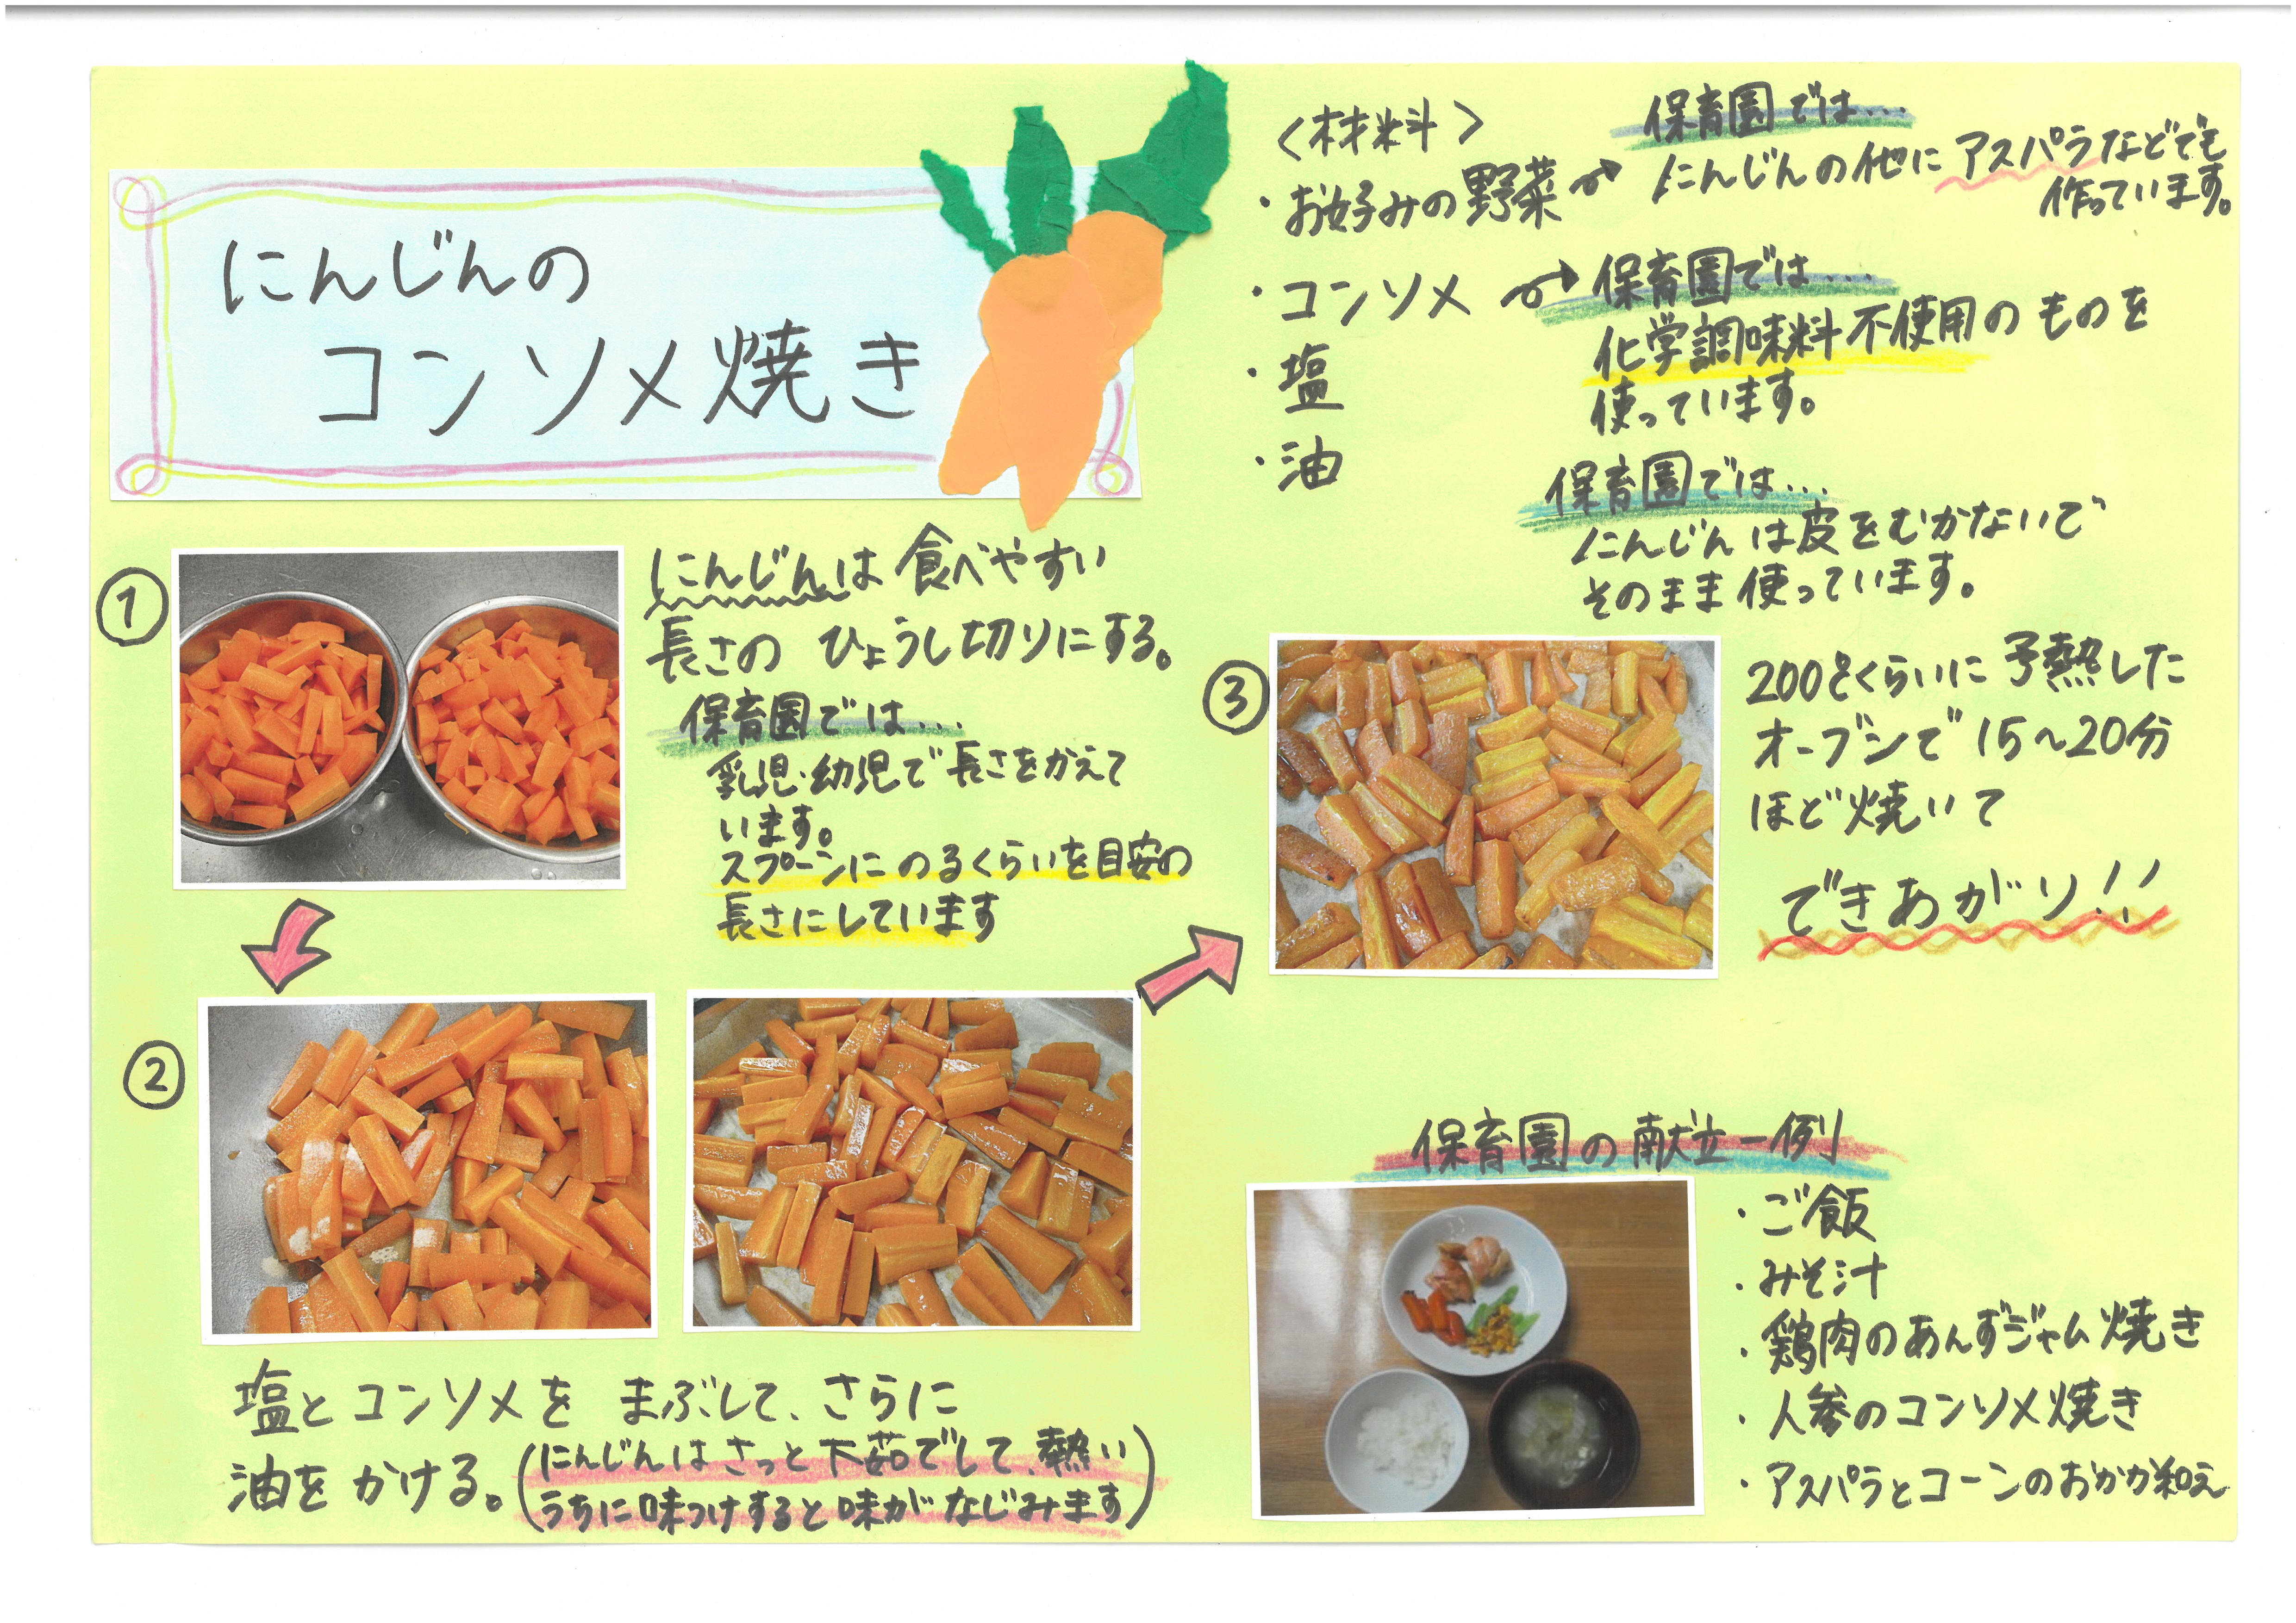 にんじんの
コンソメ焼き
<材料>
・お好みの野菜
保育園では…
にんじんの他にアスパラなどでも
作っています。
・コンソメ
保育園では…
化学調味料不使用のものを
使っています。
・塩
・油
保育園では…
にんじんは皮をむかないで
そのまま使っています。
①
にんじんは食べやすい
長さの ひょうし切りにする。
保育園では…
乳児・幼児で長さをかえて
います。
スプーンにのるくらいを目安の
長さにしています
②
塩とコンソメを まぶして、さらに
油をかける。
(にんじんはさっと下茹でして、熱い
うちに味つけすると味がなじみます)
③
200℃くらいに予熱した
オーブンで15~20分
ほど焼いて
できあがり!!
保育園の献立一例
・ご飯
・みそ汁
・鶏肉のあんずジャム焼き
・人参のコンソメ焼き
・アスパラとコーンのおかか和え